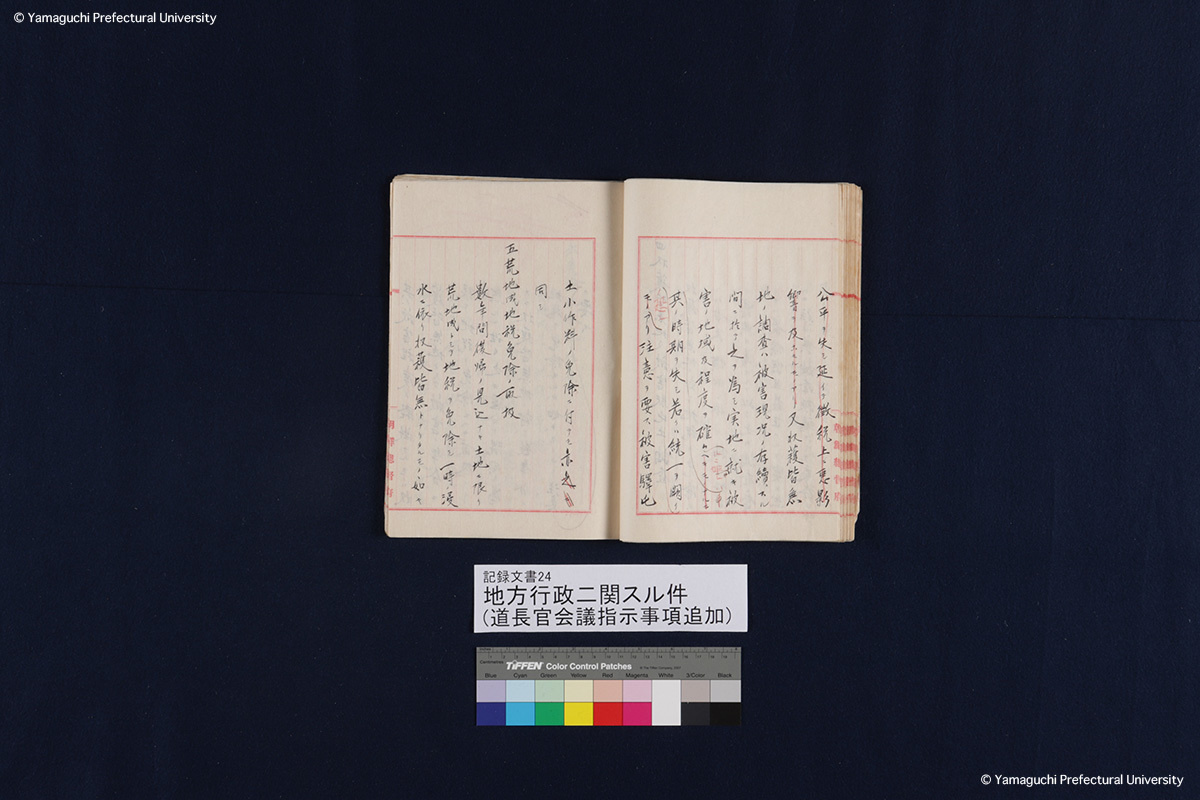 © Yamaguchi Prefectural University
公平ヲ失シ延イテ徴税上ニ悪影
響ヲ及ホスモノナリ又収穫皆無
地ノ調査ハ被害現況ノ存続スル
間ニ於テ之ヲ為シ実地ニ就キ被
害ノ地域及程度ヲ確
其ノ時期ヲ失シ若クハ統一ヲ闕ク
注意ヲ要ス被害
土小作料ノ免除ニ付テモ亦之ニ
同シ
五荒地成地税免除ノ取扱
数年間復帰ノ見込ナキ土地ニ限リ
荒地成トシテ地税ヲ免除シ一時ノ浸
水ニ依リ収穫皆無トナリタルモノノ如キ
記録文書24
地方行政二関スル件
(道長官会議指示事項追加)
Centimetres
TIFFEN Color Control Patches
Blue Cyan Green Yellow Red Magenta White 3/Color Black
© Yamaguchi Prefectural University